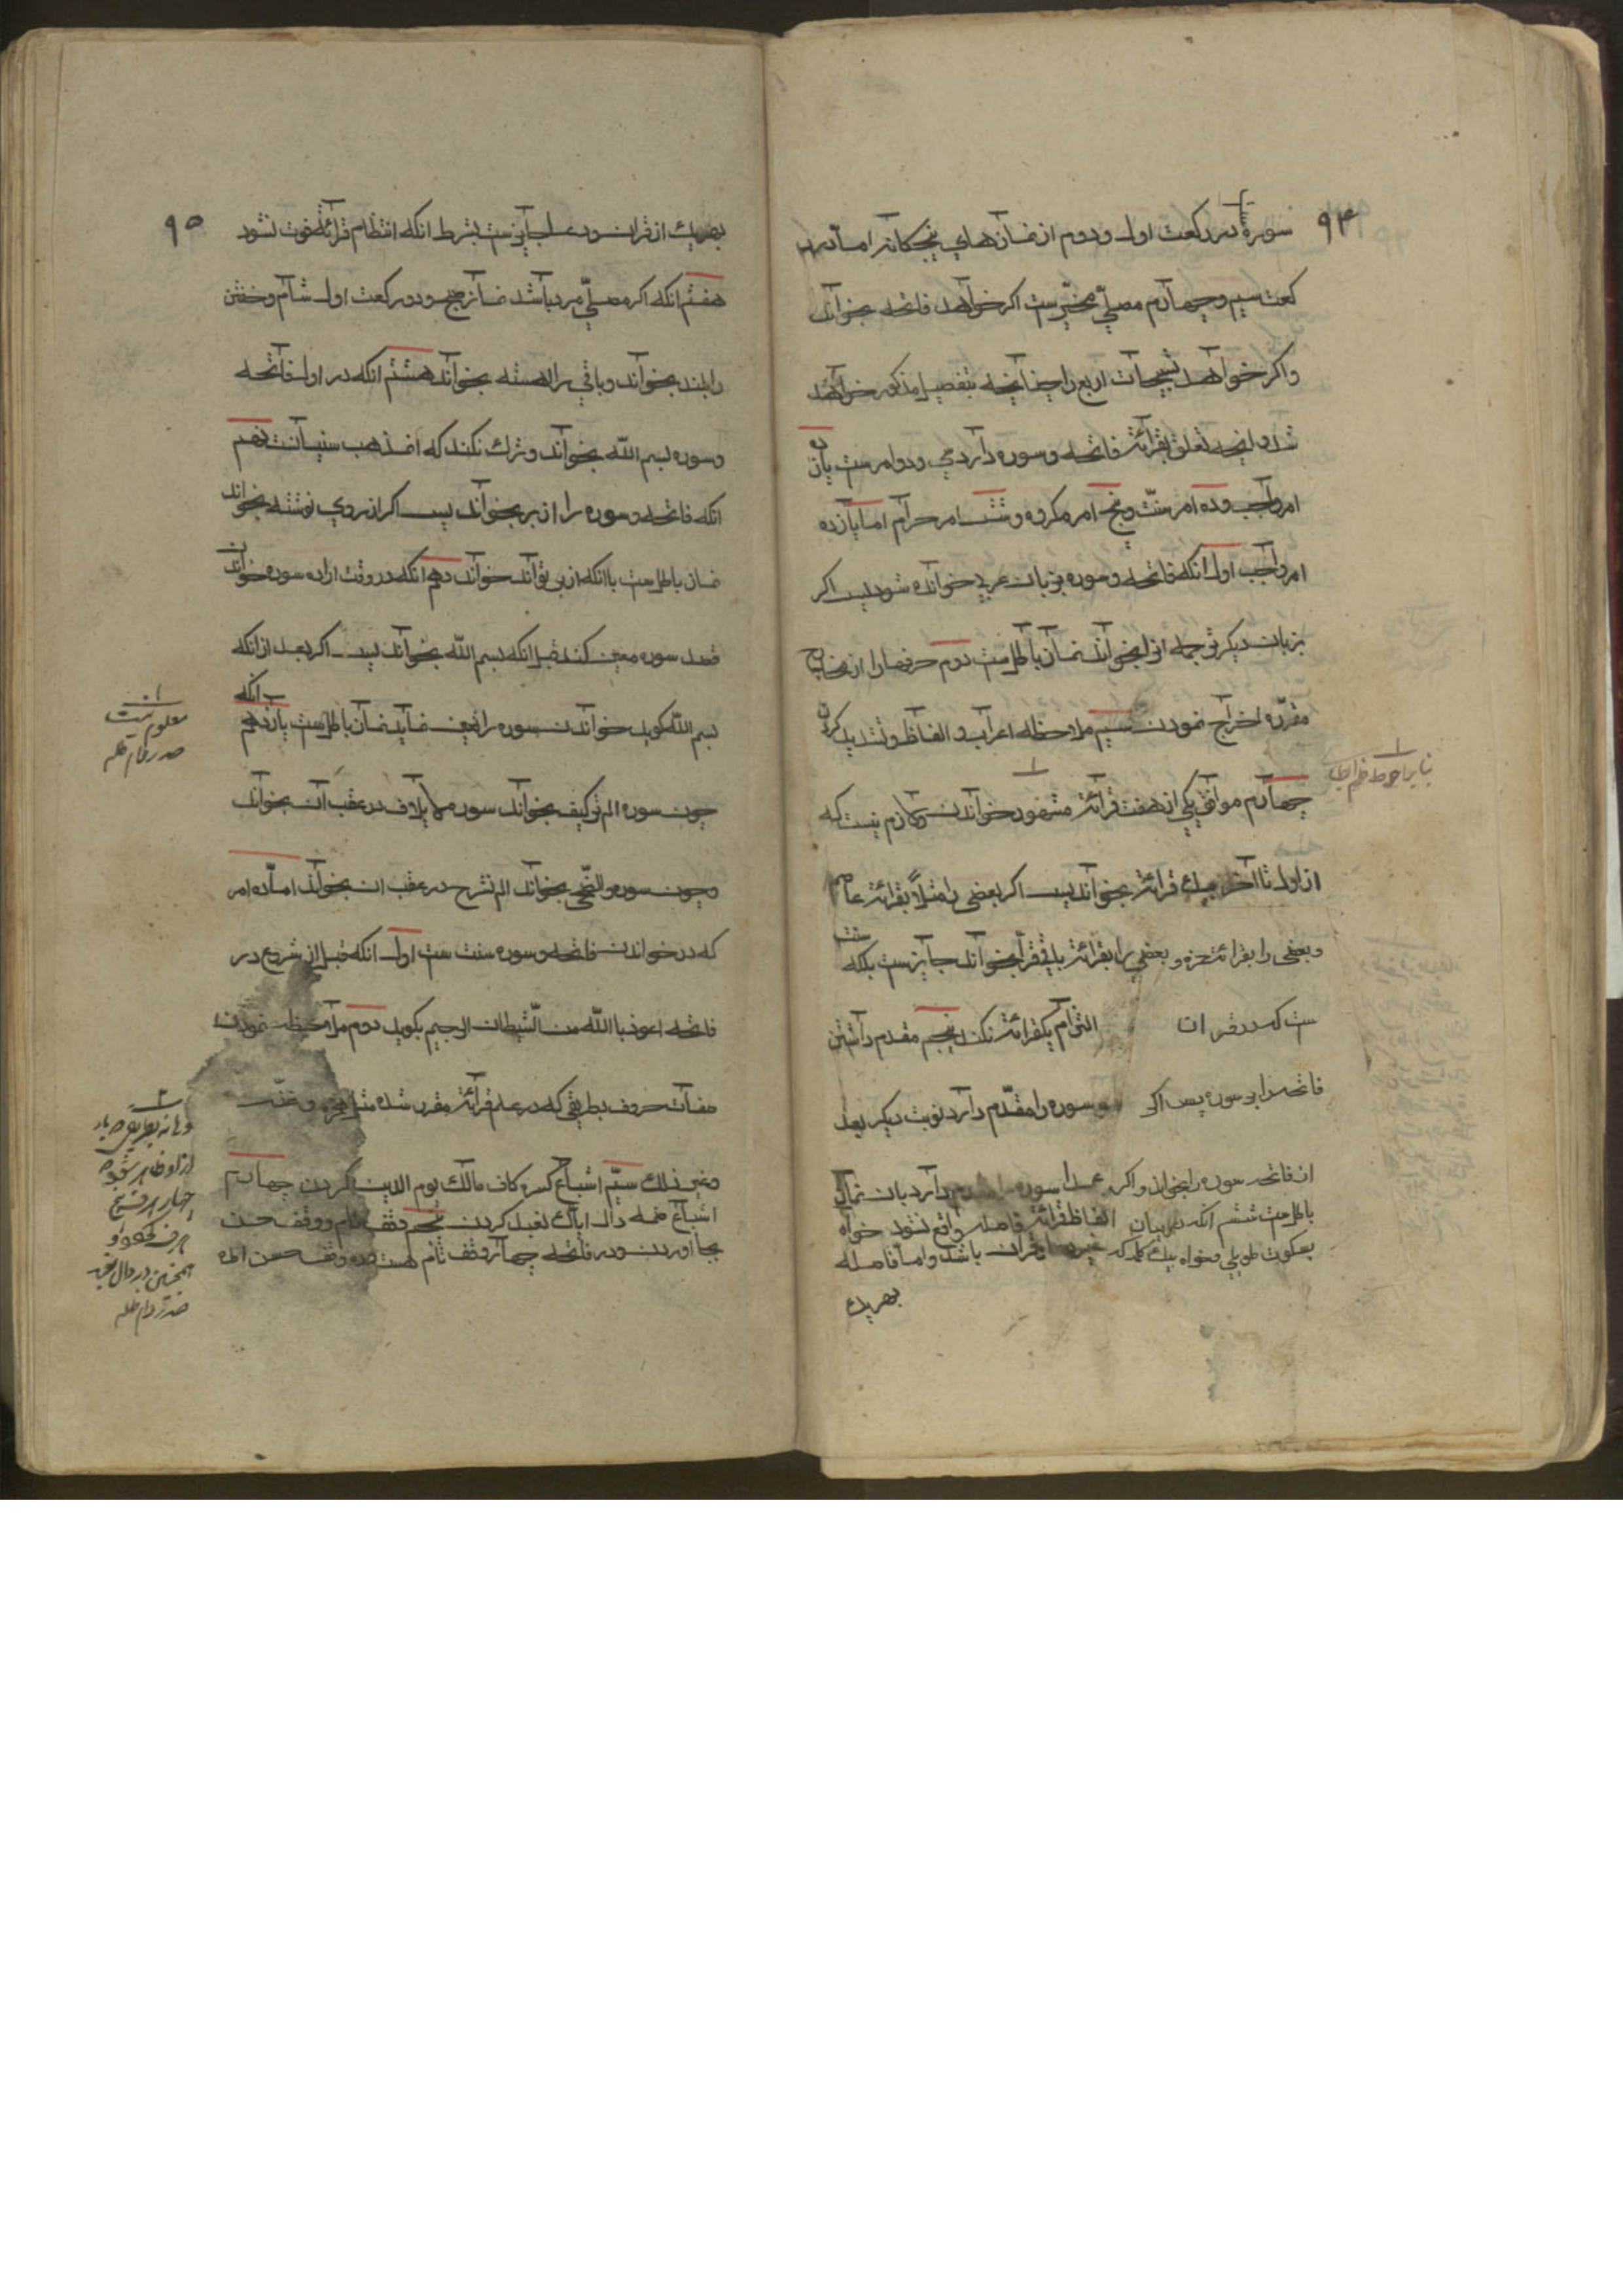 ۹۴
سورة در رکعت اول و دوم از نمازهای پنجکانه اما در
کعت سیم و چهارم مصلی مخیرست اکر خواهد فاتحه بخواند
واکر خواهد تسبیحات اربع را چنانچه بتفصیل مذکور خواهد
شد و انچه تعلق بقرائة فاتحه و سوره دارد سی و دو امرست یازده
امر واجب و ده امر سنت و پنج امر مکروه و شش امر حرام اما یازده
امر واجب اول انکه فاتحه و سوره بزبان عربی خوانده شود پس اکر
بزبان دیکر ترجمه انرا بخواند نماز باطل ست دوم حرفها را از مخارج
مقرره اخراج نمودن سیم ملاحظه اعراب و الفاظ و تشدید کردن
چهارم موافق یکی از هفت قرائة مشهور خواندن و لازم نیست که
از اول تا آخر بیک قرائة بخواند پس اکر بعضی را مثلاً بقرائة عاصم
و بعضی را بقرائة حمزه و بعضی را بقرائة باقی قرآ بخواند جایزست بلکه سنت
ست که در قران التزام یکقرائة نکند پنجم مقدم داشتن
فاتحه را بر سوره پس اکر سوره را مقدم دارد نوبت دیکر بعد
از فاتحه سوره را بخواند و اکر عمدا سوره مقدم دارد بان نماز
باطل ست ششم انکه در میان الفاظ قرائة فاصله واقع نشود خواه
بسکوت طویلی و خواه بیک کلمه که غیر قران باشد و اما فاصله
بهر یک
بنا بر احوط
۹۵
بهر یک از قران و دعا جایزست بشرط انکه انتظام قرائة فوت نشود
هفتم انکه اکر مصلی مرد باشد نماز صبح و دو رکعت اول شام و خفتن
را بلند بخواند و باقی را اهسته بخواند هشتم انکه در اول فاتحه
و سوره بسم الله بخواند و ترک نکند که ان مذهب سنیانست نهم
انکه فاتحه و سوره را از بر بخواند پس اکر از روی نوشته بخواند
نماز باطل ست با انکه از بر تواند خواند دهم انکه در وقت اراده سوره خواندن
قصد سوره معین کند قبل انکه بسم الله بخواند پس اکر بعد از انکه
بسم الله کوید خواندن سوره را تعیین نماید نماز باطل ست یازدهم انکه
چون سوره الم تر کیف بخواند سوره لایلاف در عقب آن بخواند
و چون سوره والضحی بخواند الم نشرح در عقب ان بخواند اما ده امر
که در خواندن فاتحه و سوره سنت ست اول انکه قبل از شروع در
فاتحه اعوذ باالله من الشیطان الرجیم بکوید دوم ملاحظه نمودن
صفات حروف بطریقی که در علم قرائة مقرر شده مثل و غنه
و غیر ذلک سیم اشباع کسره کاف مالک یوم الدین کردن چهارم
اشباع ضمه دال ایاک نعبد کردن پنجم وقف تام و وقف حسن
بجا اوردن و در فاتحه چهار وقف تام هست و ده وقف حسن اما
معلوم نیست
صدر دام ظله
همچنین در دال نعبد
صدر دام ظله